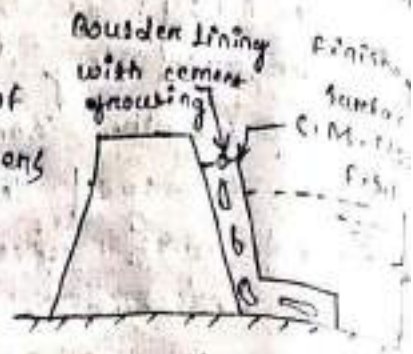 Boulder Lining
with cement
grouting
of
ons
Finishe
Surfac
C.M.